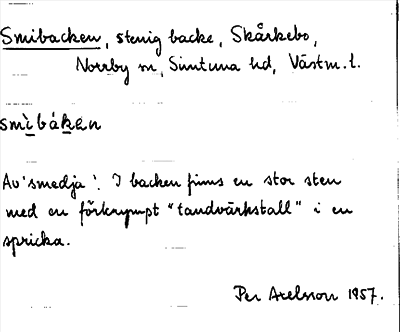 Smibacken, stenig backe, Skårkebo,
Norrby sn, Simtuna hd, Västm. l.
smìbákèn
Av 'smedja'. I backen finns en stor sten
med en förkrympt "tandvärkstall" i en
spricka.
Per Axelsson 1957.